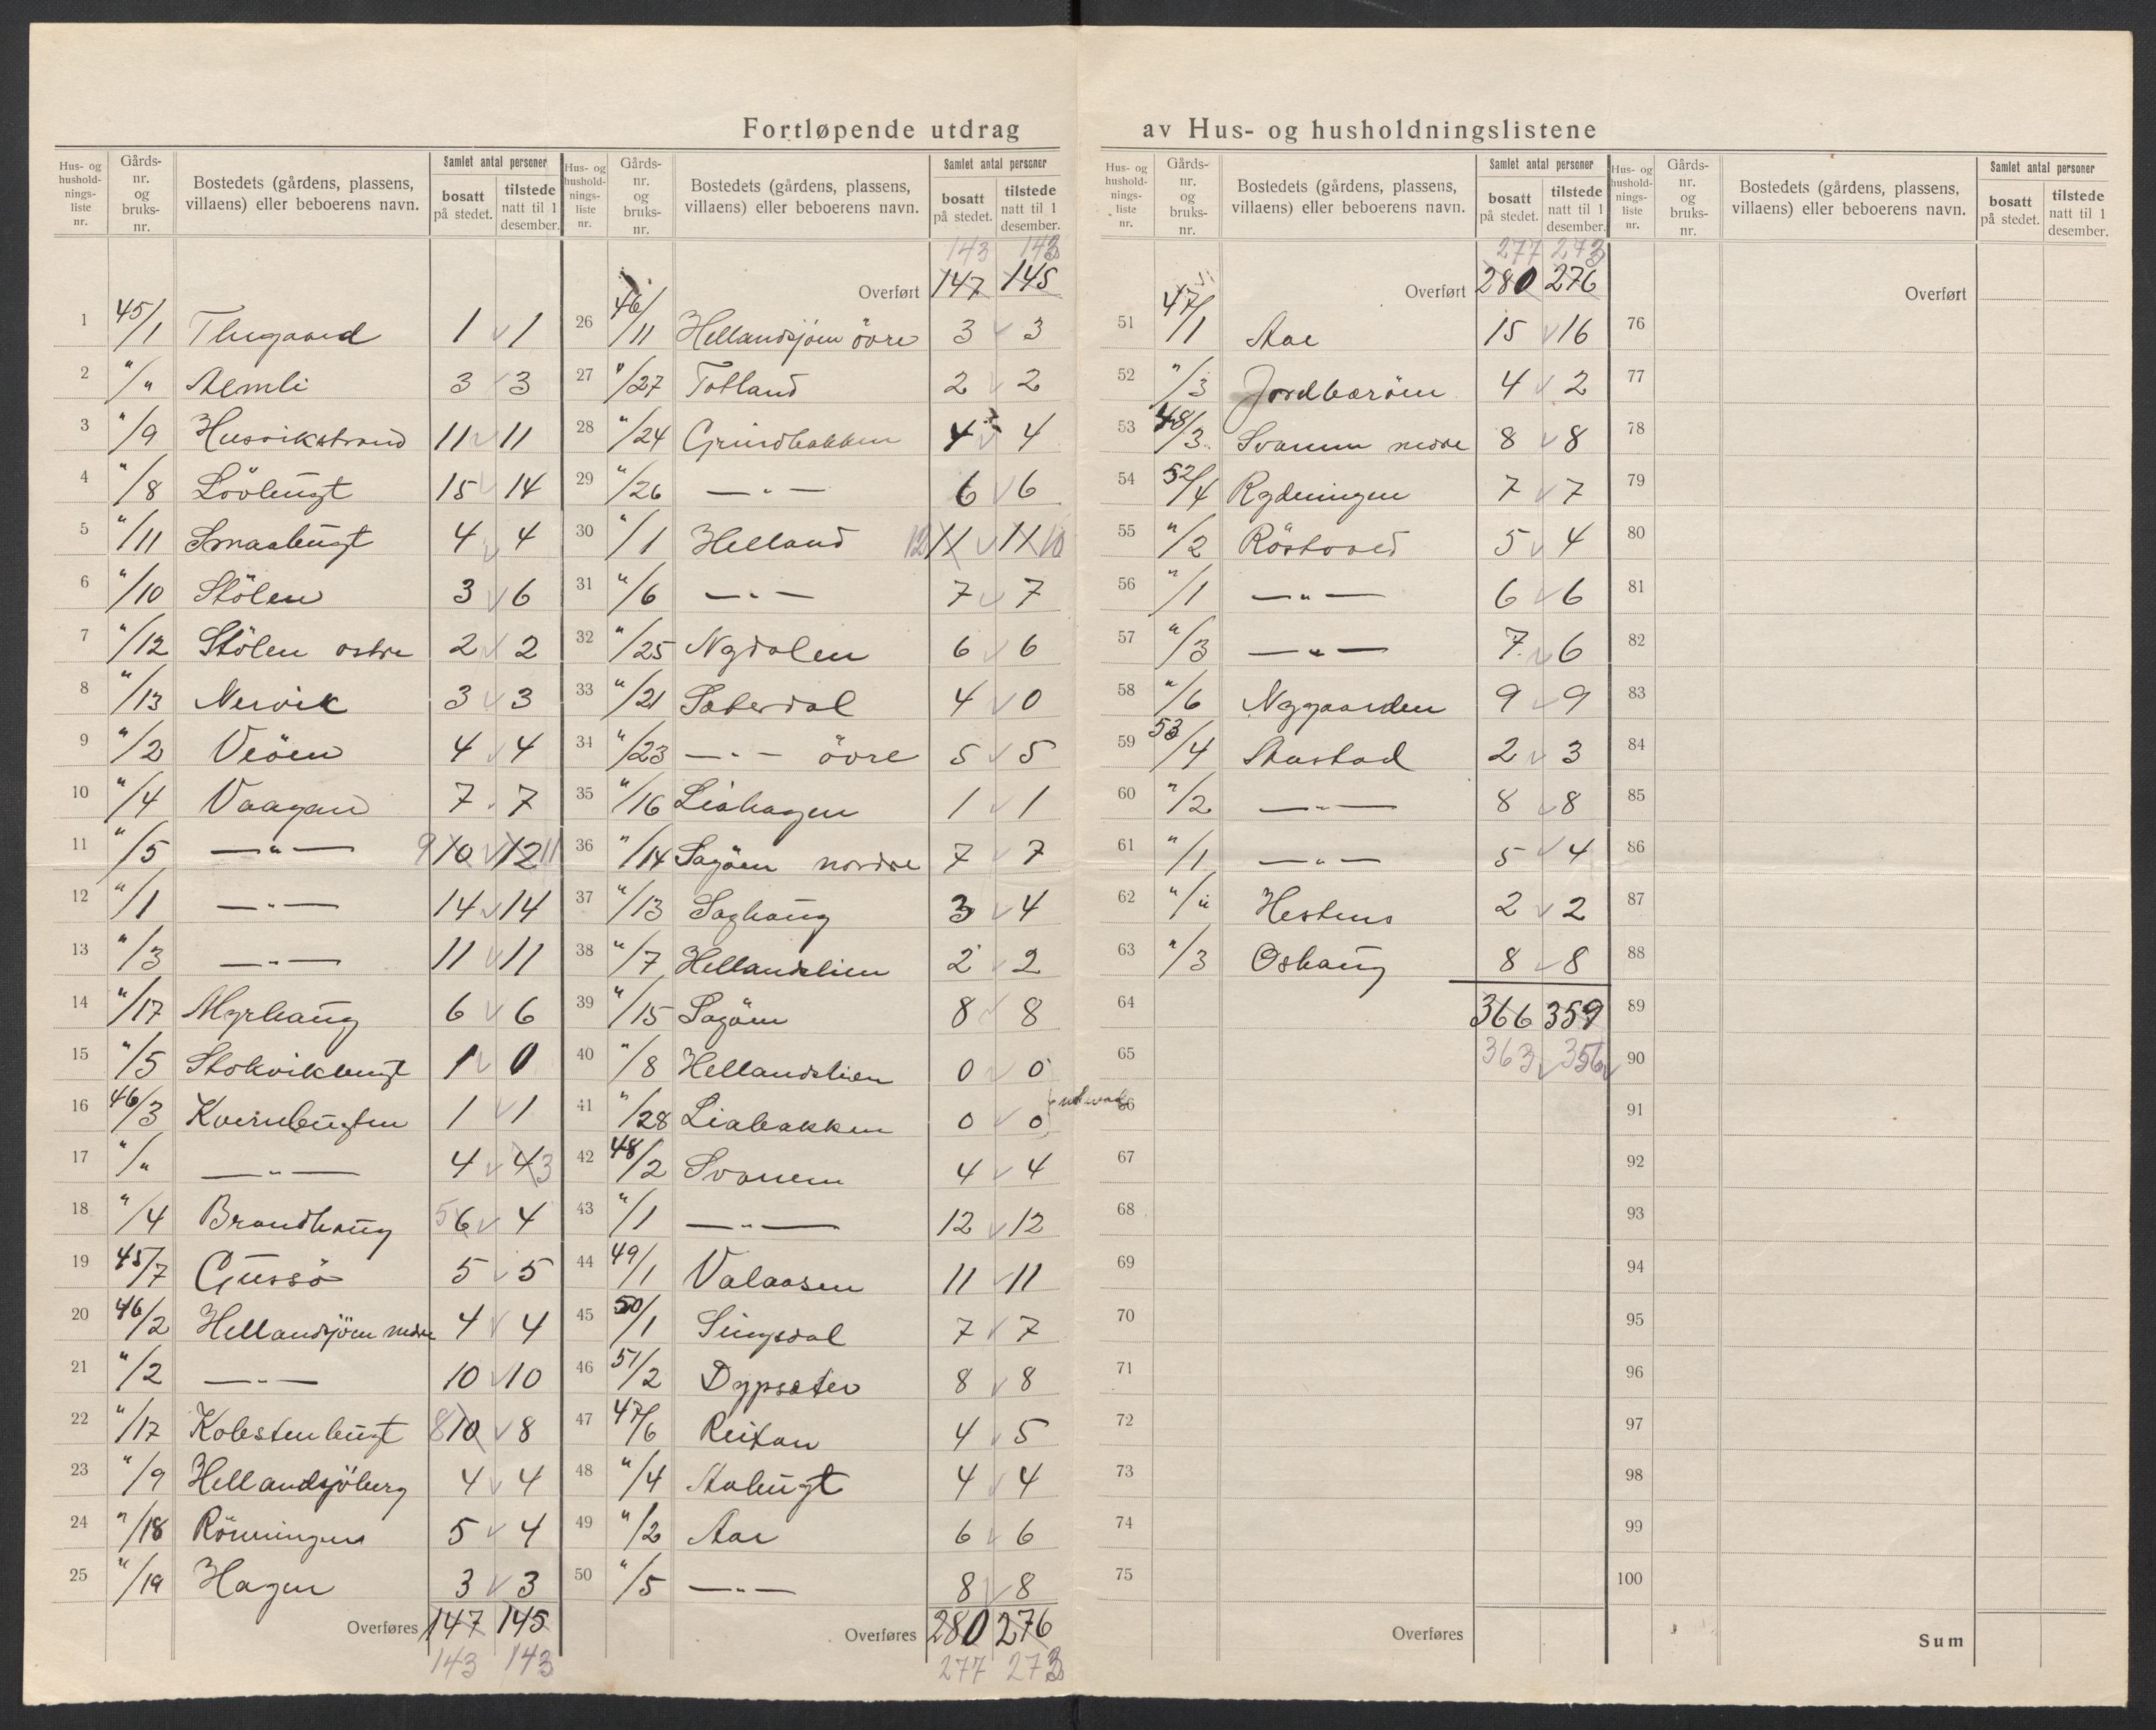 Fortløpende utdrag av Hus- og husholdningslistene
Hus- og husholdnings-liste nr. Gårds-nr. og bruks-nr. Bostedets (gårdens, plassens, villaens) eller beboerens navn. Samlet antal personer bosatt på stedet. tilstede natt til 1 desember.
1 45/1 Thugaard 1 1
2 "/" Almli 3 3
3 "/9 Husvikstrand 11 11
4 "/8 Lövbugt 15 14
5 "/11 Smaabugt 4 4
6 "/10 Stölen 3 6
7 "/12 Stölen östre 2 2
8 "/13 Nervik 3 3
9 "/2 Veöen 4 4
10 "/4 Vaagan 7 7
11 "/5 —"— 9 10 12 11
12 "/1 —"— 14 14
13 "/3 —"— 11 11
14 "/17 Myrhaug 6 6
15 "/5 Stokvikbugt 1 0
16 46/3 Kvernbugten 1 1
17 "/" —"— 4 4 3
18 "/4 Brandhaug 5 6 4
19 45/7 Gussö 5 5
20 46/2 Hellandsjöen nedre 4 4
21 "/2 —"— 10 10
22 "/17 Kolstenbugt 8 10 8
23 "/9 Hellandsjöberg 4 4
24 "/18 Rönningen 5 4
25 "/19 Hagen 3 3
Overføres 147 145
143 143
Hus- og husholdnings-liste nr. Gårds-nr. og bruks-nr. Bostedets (gårdens, plassens, villaens) eller beboerens navn. Samlet antal personer bosatt på stedet. tilstede natt til 1 desember.
143 143
Overført 147 145
26 46/11 Hellandsjöen övre 3 3
27 "/27 Totland 2 2
28 "/24 Grindbakken 4 4
29 "/26 —"— 6 6
30 "/1 Helland 12 11 11 10
31 "/6 —"— 7 7
32 "/25 Nydalen 6 6
33 "/21 Sæterdal 4 0
34 "/23 —"— övre 5 5
35 "/16 Liahagen 1 1
36 "/14 Sagöen nordre 7 7
37 "/13 Saghaug 3 4
38 "/7 Hellandslien 2 2
39 "/15 Sagöen 8 8
40 "/8 Hellandslien 0 0
41 "/28 Liabakken 0 0
42 48/2 Svanem 4 4
43 "/1 —"— 12 12
44 49/1 Valaasen 11 11
45 50/1 Singsdal 7 7
46 51/2 Dypsæter 8 8
47 47/6 Reitan 4 5
48 "/4 Aabugt 4 4
49 "/2 Aae 6 6
50 "/5 —"— 8 8
Overføres 280 276
277 273
Hus- og husholdnings-liste nr. Gårds-nr. og bruks-nr. Bostedets (gårdens, plassens, villaens) eller beboerens navn. Samlet antal personer bosatt på stedet. tilstede natt til 1 desember.
277 273
Overført 280 276
51 47/1 Aae 15 16
52 "/3 Jordbæröen 4 2
53 48/3 Svanem nedre 8 8
54 52/4 Rydningen 7 7
55 "/2 Röstvoed 5 4
56 "/1 —"— 6 6
57 "/3 —"— 7 6
58 "/6 Nygaarden 9 9
59 53/4 Aastad 2 3
60 "/2 —"— 8 8
61 "/1 —"— 5 4
62 "/" Hestnes 2 2
63 "/3 Oshaug 8 8
64 366 359
65 363 356
66
67
68
69
70
71
72
73
74
75
Overføres
Hus- og husholdnings-liste nr. Gårds-nr. og bruks-nr. Bostedets (gårdens, plassens, villaens) eller beboerens navn. Samlet antal personer bosatt på stedet. tilstede natt til 1 desember.
Overført
76
77
78
79
80
81
82
83
84
85
86
87
88
89
90
91
92
93
94
95
96
97
98
99
100
Sum